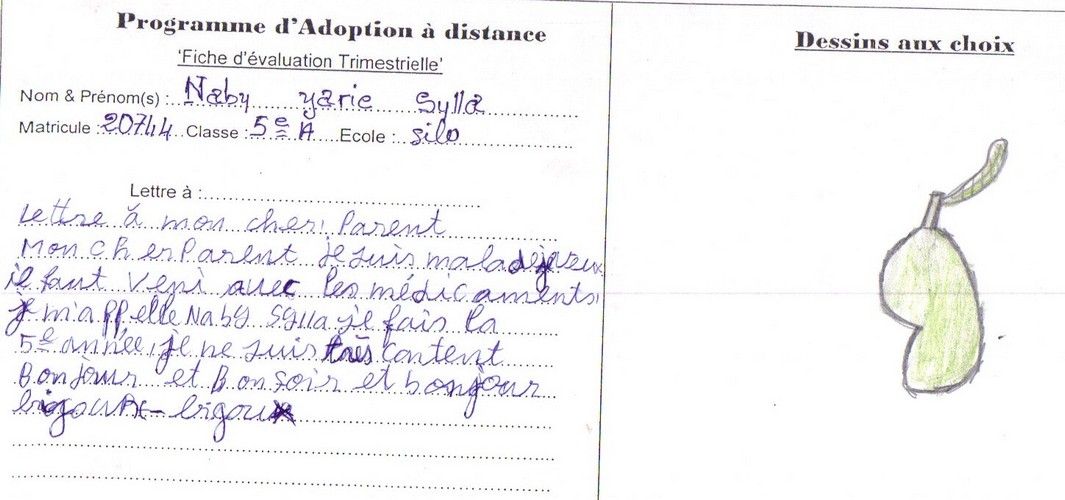 Programme d'Adoption à distance
'Fiche d'évaluation Trimestrielle'
Nom & Prénom(s) : Naby yarie Sylla
Matricule : 20744 Classe : 5e A Ecole : silo
Lettre à :
Lettre à mon cher Parent
Mon cher Parent je suis malade je veux
il faut Veni avec les médicaments
je m'appelle Naby Sylla je fais la
5e année, je ne suis très content
Bonjour et Bonsoir et bonjour
Dessins aux choix